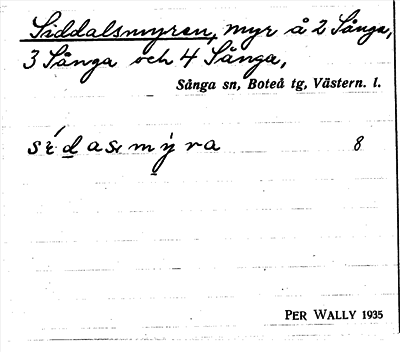 Siddalsmyren, myr å 2 Sånga,
3 Sånga och 4 Sånga,
Sånga sn, Boteå tg, Västern. l.
8
PER WALLY 1935